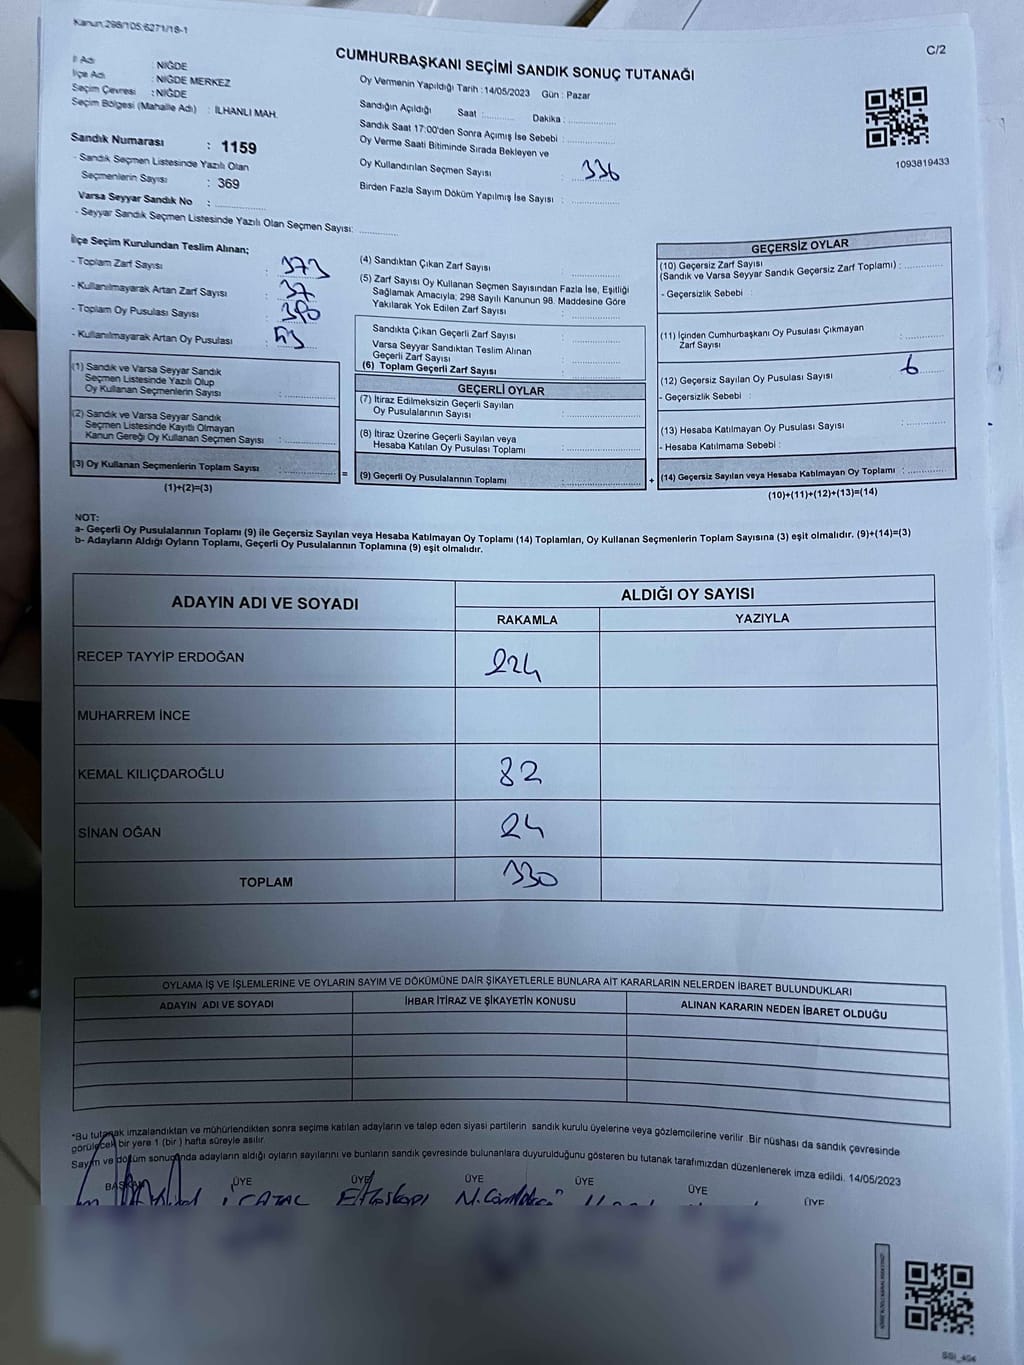 Kanun:298/105;6271/18-1
C/2
CUMHURBAŞKANI SEÇİMİ SANDIK SONUÇ TUTANAĞI
İl Adı : NİĞDE
İlçe Adı : NİĞDE MERKEZ
Seçim Çevresi : NİĞDE
Seçim Bölgesi (Mahalle Adı) : İLHANLI MAH.
Sandık Numarası : 1159
- Sandık Seçmen Listesinde Yazılı Olan
Seçmenlerin Sayısı : 369
Varsa Seyyar Sandık No :
- Seyyar Sandık Seçmen Listesinde Yazılı Olan Seçmen Sayısı:
Oy Vermenin Yapıldığı Tarih : 14/05/2023 Gün : Pazar
Sandığın Açıldığı Saat : Dakika :
Sandık Saat 17:00'den Sonra Açımış İse Sebebi :
Oy Verme Saati Bitiminde Sırada Bekleyen ve
Oy Kullandırılan Seçmen Sayısı : 336
Birden Fazla Sayım Döküm Yapılmış İse Sayısı :
1093819433
İlçe Seçim Kurulundan Teslim Alınan;
- Toplam Zarf Sayısı : 373
- Kullanılmayarak Artan Zarf Sayısı : 37
- Toplam Oy Pusulası Sayısı :
- Kullanılmayarak Artan Oy Pusulası :
(1) Sandık ve Varsa Seyyar Sandık
Seçmen Listesinde Yazılı Olup
Oy Kullanan Seçmenlerin Sayısı :
(2) Sandık ve Varsa Seyyar Sandık
Seçmen Listesinde Kayıtlı Olmayan
Kanun Gereği Oy Kullanan Seçmen Sayısı :
(3) Oy Kullanan Seçmenlerin Toplam Sayısı :
(1)+(2)=(3)
=
(4) Sandıktan Çıkan Zarf Sayısı :
(5) Zarf Sayısı Oy Kullanan Seçmen Sayısından Fazla İse, Eşitliği
Sağlamak Amacıyla; 298 Sayılı Kanunun 98. Maddesine Göre
Yakılarak Yok Edilen Zarf Sayısı :
Sandıkta Çıkan Geçerli Zarf Sayısı :
Varsa Seyyar Sandıktan Teslim Alınan
Geçerli Zarf Sayısı :
(6) Toplam Geçerli Zarf Sayısı :
GEÇERLİ OYLAR
(7) İtiraz Edilmeksizin Geçerli Sayılan
Oy Pusulalarının Sayısı :
(8) İtiraz Üzerine Geçerli Sayılan veya
Hesaba Katılan Oy Pusulası Toplamı :
(9) Geçerli Oy Pusulalarının Toplamı :
+
GEÇERSİZ OYLAR
(10) Geçersiz Zarf Sayısı
(Sandık ve Varsa Seyyar Sandık Geçersiz Zarf Toplamı) :
- Geçersizlik Sebebi :
(11) İçinden Cumhurbaşkanı Oy Pusulası Çıkmayan
Zarf Sayısı :
(12) Geçersiz Sayılan Oy Pusulası Sayısı : 6
- Geçersizlik Sebebi :
(13) Hesaba Katılmayan Oy Pusulası Sayısı :
- Hesaba Katılmama Sebebi :
(14) Geçersiz Sayılan veya Hesaba Katılmayan Oy Toplamı :
(10)+(11)+(12)+(13)=(14)
NOT:
a- Geçerli Oy Pusulalarının Toplamı (9) ile Geçersiz Sayılan veya Hesaba Katılmayan Oy Toplamı (14) Toplamları, Oy Kullanan Seçmenlerin Toplam Sayısına (3) eşit olmalıdır. (9)+(14)=(3)
b- Adayların Aldığı Oyların Toplamı, Geçerli Oy Pusulalarının Toplamına (9) eşit olmalıdır.
ADAYIN ADI VE SOYADI
ALDIĞI OY SAYISI
RAKAMLA YAZIYLA
RECEP TAYYİP ERDOĞAN 224
MUHARREM İNCE
KEMAL KILIÇDAROĞLU 82
SİNAN OĞAN 24
TOPLAM 330
OYLAMA İŞ VE İŞLEMLERİNE VE OYLARIN SAYIM VE DÖKÜMÜNE DAİR ŞİKAYETLERLE BUNLARA AİT KARARLARIN NELERDEN İBARET BULUNDUKLARI
ADAYIN ADI VE SOYADI İHBAR İTİRAZ VE ŞİKAYETİN KONUSU ALINAN KARARIN NEDEN İBARET OLDUĞU
*Bu tutanak imzalandıktan ve mühürlendikten sonra seçime katılan adayların ve talep eden siyasi partilerin sandık kurulu üyelerine veya gözlemcilerine verilir. Bir nüshası da sandık çevresinde
görülecek bir yere 1 (bir) hafta süreyle asılır.
Sayım ve döküm sonucunda adayların aldığı oyların sayılarını ve bunların sandık çevresinde bulunanlara duyurulduğunu gösteren bu tutanak tarafımızdan düzenlenerek imza edildi. 14/05/2023
BAŞKAN ÜYE ÜYE ÜYE ÜYE ÜYE ÜYE